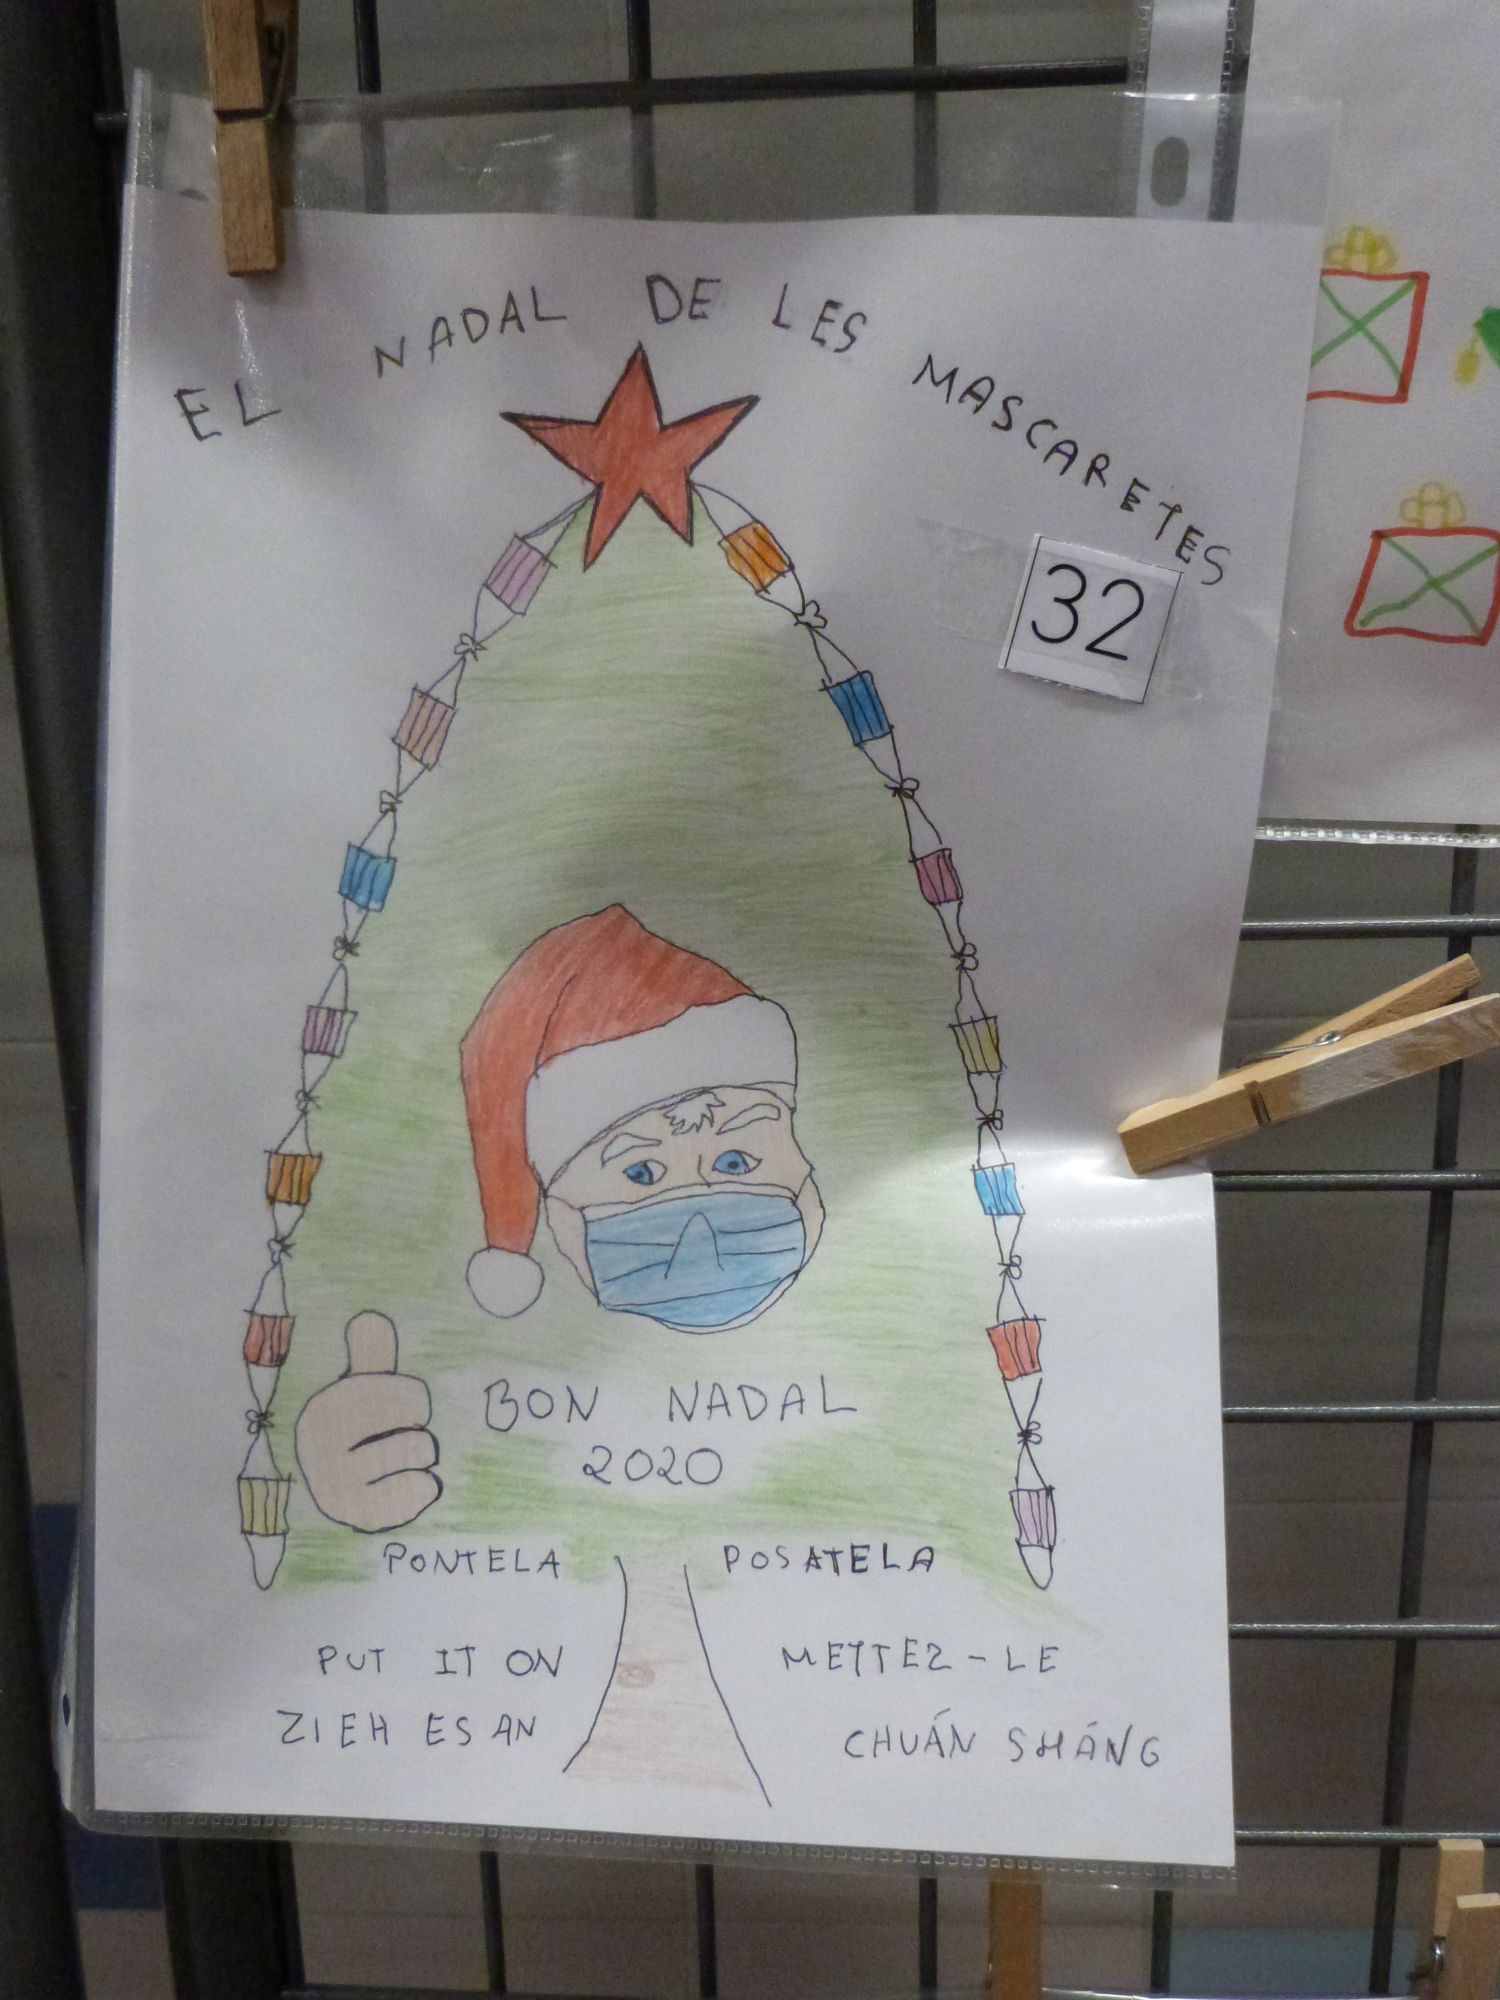 EL NADAL DE LES MASCARETES
32
BON NADAL
2020
PONTELA POSATELA
PUT IT ON METTEZ-LE
ZIEH ES AN CHUÁN SHÁNG